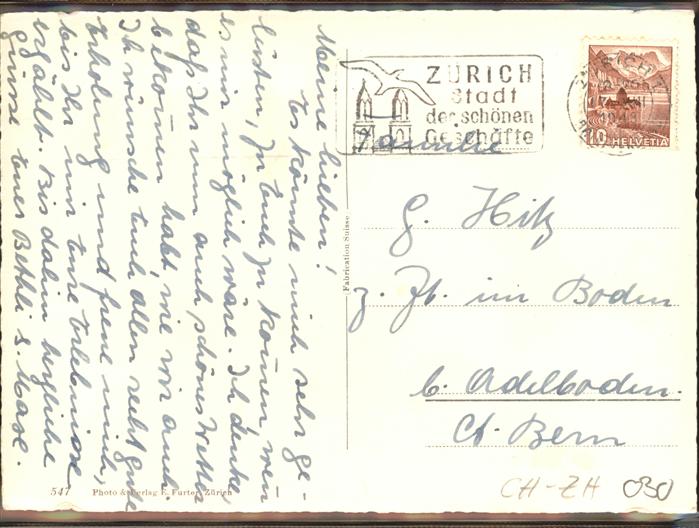 Meine lieben!
Es könnte mich sehr ge-
lüsten, zu Euch zu kommen, wenn
es mir möglich wäre. Ich denke,
dass Ihr nun auch schönes Wetter
bekommen habt, wie wir auch.
Ich wünsche Euch allen recht gute
Erholung und freue mich,
bis Ihr mir Eure Erlebnisse
erzählt. Bis dahin herzliche
Grüsse Eures Bethli &
547 Photo & Verlag E. Furter, Zürich
Fabrication Suisse
ZÜRICH
Stadt
der schönen
Geschäfte
10 HELVETIA
Familie
G. Hitz
z. Zt. im Boden
b. Adelboden.
Ct. Bern
CH-ZH 030